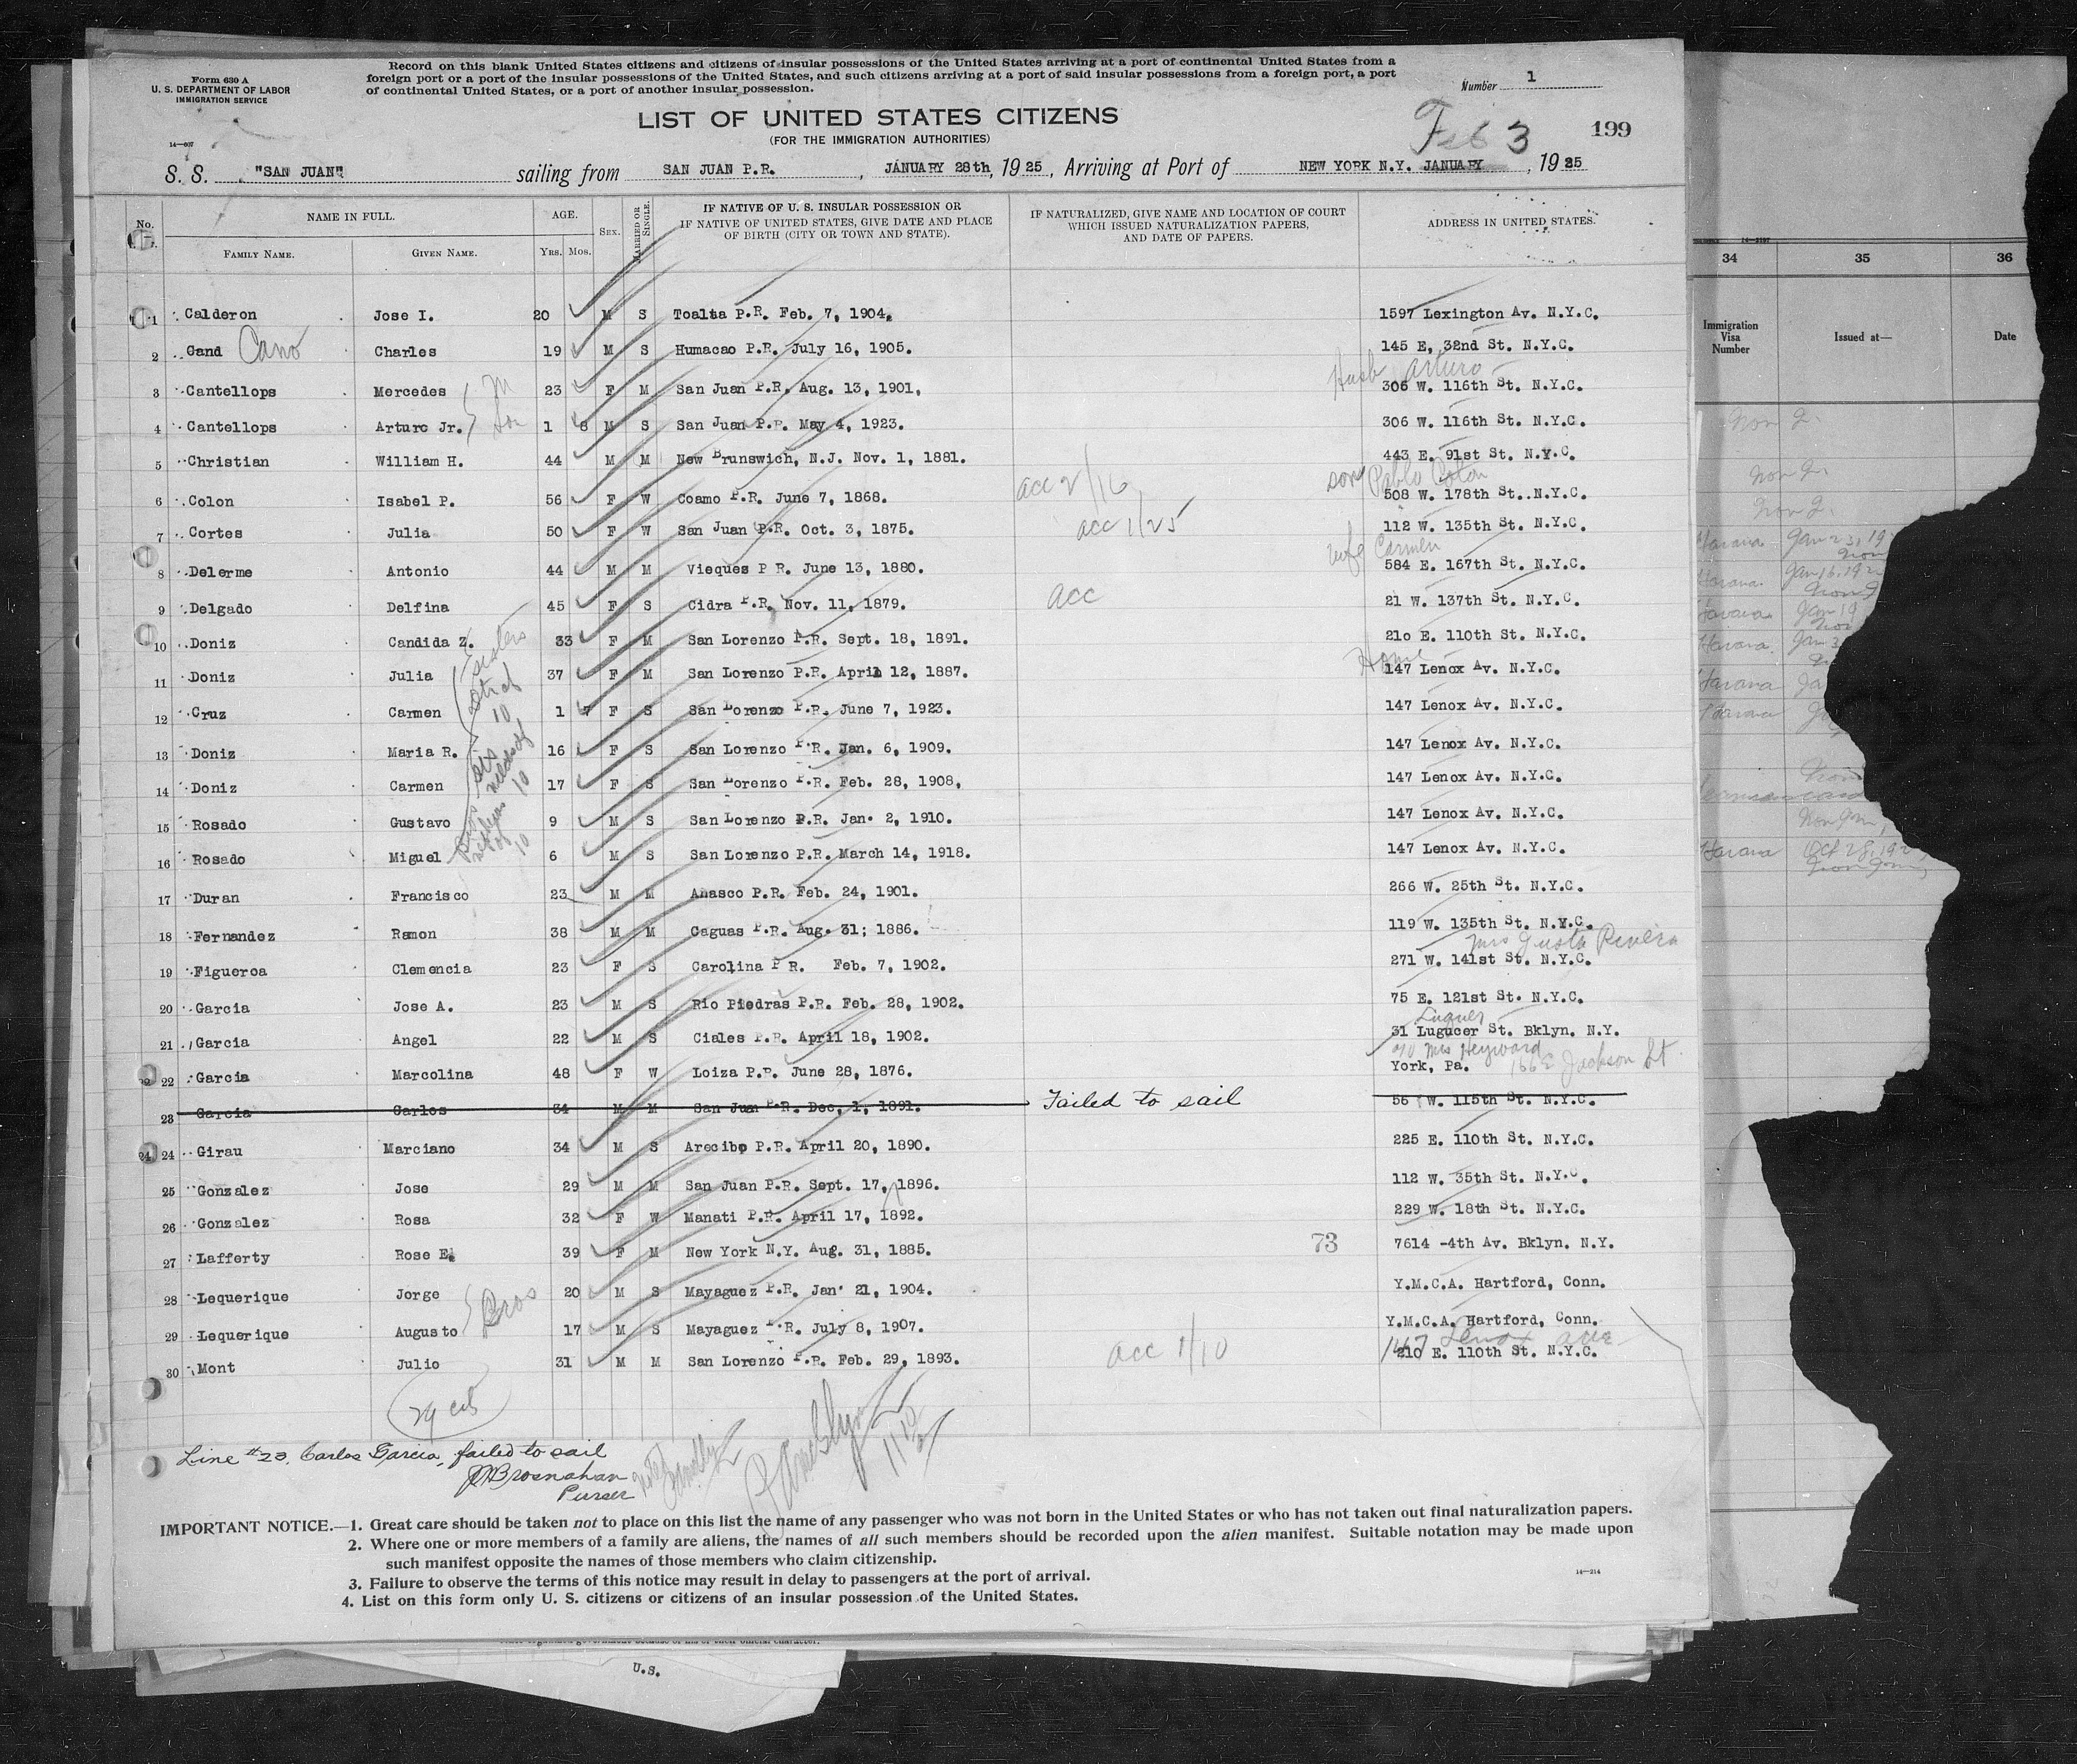 Form 630 A
U. S. DEPARTMENT OF LABOR
IMMIGRATION SERVICE
Record on this blank United States citizens and citizens of insular possessions of the United States arriving at a port of continental United States from a
foreign port or a port of the insular possessions of the United States, and such citizens arriving at a port of said insular possessions from a foreign port, a port
of continental United States, or a port of another insular possession.
Number 1
LIST OF UNITED STATES CITIZENS
(FOR THE IMMIGRATION AUTHORITIES)
Feb 3
199
14—607
S. S. "SAN JUAN" sailing from SAN JUAN P.R. , JANUARY 28th, 1925, Arriving at Port of NEW YORK N.Y. JANUARY , 1925
No. NAME IN FULL. AGE. SEX. MARRIED OR SINGLE. IF NATIVE OF U. S. INSULAR POSSESSION OR IF NATIVE OF UNITED STATES, GIVE DATE AND PLACE OF BIRTH (CITY OR TOWN AND STATE). IF NATURALIZED, GIVE NAME AND LOCATION OF COURT WHICH ISSUED NATURALIZATION PAPERS, AND DATE OF PAPERS. ADDRESS IN UNITED STATES.
FAMILY NAME. GIVEN NAME. YRS. MOS.
1 Calderon Jose I. 20 M S Toalta P.R. Feb. 7, 1904. 1597 Lexington Av. N.Y.C.
2 Gand Cano Charles 19 M S Humacao P.R. July 16, 1905. 145 E. 32nd St. N.Y.C.
Husb Arturo
3 Cantellops Mercedes M 23 F M San Juan P.R. Aug. 13, 1901. 306 W. 116th St. N.Y.C.
4 Cantellops Arturo Jr. Son 1 8 M S San Juan P.R. May 4, 1923. 306 W. 116th St. N.Y.C.
5 Christian William H. 44 M M New Brunswich, N.J. Nov. 1, 1881. 443 E. 91st St. N.Y.C.
son Pablo Colon
6 Colon Isabel P. 56 F W Coamo P.R. June 7, 1868. acc 2/16 508 W. 178th St. N.Y.C.
7 Cortes Julia 50 F W San Juan P.R. Oct. 3, 1875. acc 1/25 112 W. 135th St. N.Y.C.
wife Carmen
8 Delerme Antonio 44 M M Vieques P R. June 13, 1880. 584 E. 167th St. N.Y.C.
9 Delgado Delfina 45 F S Cidra P.R. Nov. 11, 1879. acc 21 W. 137th St. N.Y.C.
10 Doniz Candida Z. sisters 33 F M San Lorenzo P.R. Sept. 18, 1891. 210 E. 110th St. N.Y.C.
Home
11 Doniz Julia 37 F M San Lorenzo P.R. April 12, 1887. 147 Lenox Av. N.Y.C.
12 Cruz Carmen 10 1 7 F S San Lorenzo P.R. June 7, 1923. 147 Lenox Av. N.Y.C.
13 Doniz Maria R. 16 F S San Lorenzo P.R. Jan. 6, 1909. 147 Lenox Av. N.Y.C.
14 Doniz Carmen 10 17 F S San Lorenzo P.R. Feb. 28, 1908, 147 Lenox Av. N.Y.C.
15 Rosado Gustavo 9 M S San Lorenzo P.R. Jan. 2, 1910. 147 Lenox Av. N.Y.C.
16 Rosado Miguel 10 6 M S San Lorenzo P.R. March 14, 1918. 147 Lenox Av. N.Y.C.
17 Duran Francisco 23 M M Anasco P.R. Feb. 24, 1901. 266 W. 25th St. N.Y.C.
18 Fernandez Ramon 38 M M Caguas P.R. Aug. 31; 1886. 119 W. 135th St. N.Y.C.
Mrs Justa Rivera
19 Figueroa Clemencia 23 F S Carolina P R. Feb. 7, 1902. 271 W. 141st St. N.Y.C.
20 Garcia Jose A. 23 M S Rio Piedras P.R. Feb. 28, 1902. 75 E. 121st St. N.Y.C.
Luquer
21 Garcia Angel 22 M S Ciales P.R. April 18, 1902. 31 Lugucer St. Bklyn. N.Y.
c/o Mrs Heyward
22 Garcia Marcolina 48 F W Loiza P.R. June 28, 1876. York, Pa. 166 E Jackson St
23 Garcia Carlos 34 M M San Juan P.R. Dec. 1, 1891. Failed to sail 56 W. 115th St. N.Y.C.
24 Girau Marciano 34 M S Arecibo P.R. April 20, 1890. 225 E. 110th St. N.Y.C.
25 Gonzalez Jose 29 M M San Juan P.R. Sept. 17, 1896. 112 W. 35th St. N.Y.C.
26 Gonzalez Rosa 32 F W Manati P.R. April 17, 1892. 229 W. 18th St. N.Y.C.
27 Lafferty Rose E. 39 F M New York N.Y. Aug. 31, 1885. 73 7614 -4th Av. Bklyn. N.Y.
28 Lequerique Jorge Bros 20 M S Mayaguez P.R. Jan. 21, 1904. Y.M.C.A. Hartford, Conn.
29 Lequerique Augusto 17 M S Mayaguez P.R. July 8, 1907. Y.M.C.A. Hartford, Conn.
147 Lenox ave
30 Mont Julio 31 M M San Lorenzo P.R. Feb. 29, 1893. acc 1/10 210 E. 110th St. N.Y.C.
Line #23, Carlos Garcia, failed to sail
Brosnahan
Purser
IMPORTANT NOTICE.—1. Great care should be taken not to place on this list the name of any passenger who was not born in the United States or who has not taken out final naturalization papers.
2. Where one or more members of a family are aliens, the names of all such members should be recorded upon the alien manifest. Suitable notation may be made upon
such manifest opposite the names of those members who claim citizenship.
3. Failure to observe the terms of this notice may result in delay to passengers at the port of arrival.
4. List on this form only U. S. citizens or citizens of an insular possession of the United States.
14—214
U.S.
34 35 36
Immigration Visa Number Issued at— Date